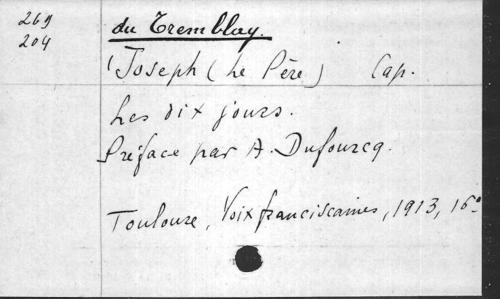 269
204
du Tremblay.
Joseph (Le Père) Cap.
Les dix jours.
Préface par A. Dufourcq.
Toulouse, Voix franciscaines, 1913, 16º